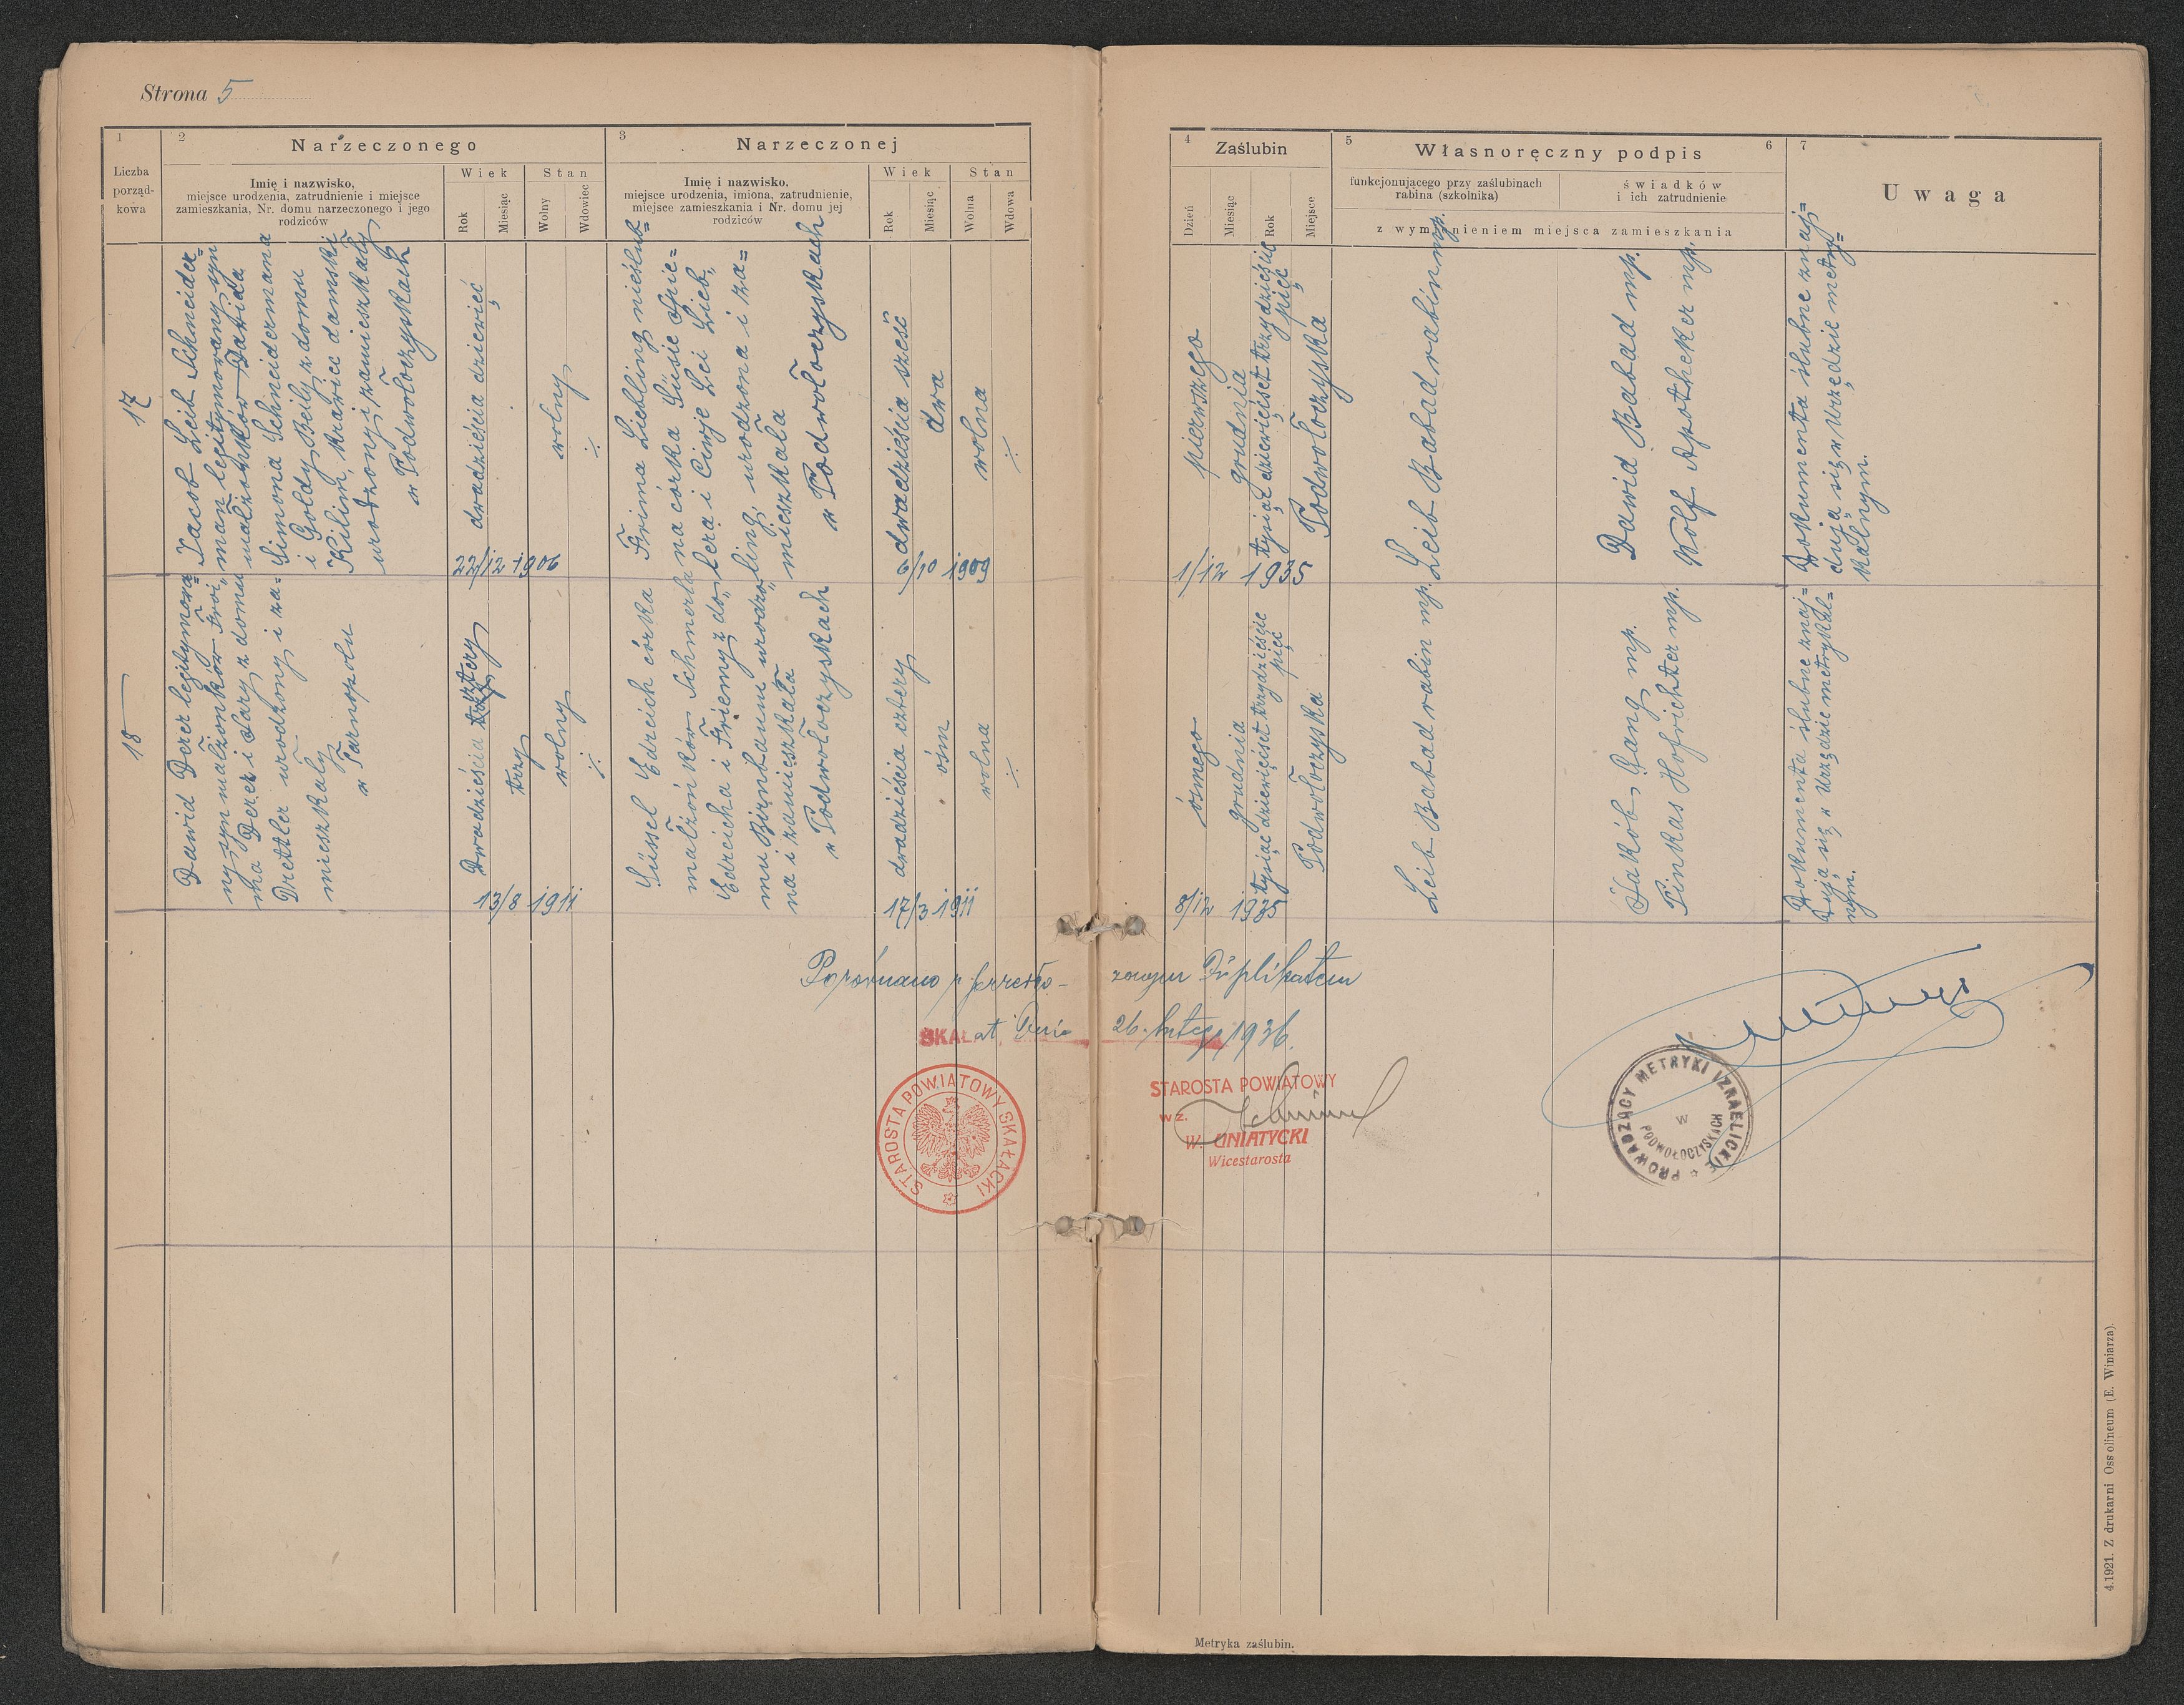 Strona 5
1
Liczba
porząd-
kowa
2
Narzeczonego
Imię i nazwisko,
miejsce urodzenia, zatrudnienie i miejsce
zamieszkania, Nr. domu narzeczonego i jego
rodziców
Wiek
Rok
Miesiąc
Stan
Wolny
Wdowiec
3
Narzeczonej
Imię i nazwisko,
miejsce urodzenia, imiona, zatrudnienie,
miejsce zamieszkania i Nr. domu jej
rodziców
Wiek
Rok
Miesiąc
Stan
Wolna
Wdowa
4
Zaślubin
Dzień
Miesiąc
Rok
Miejsce
5
Własnoręczny podpis
6
funkcjonującego przy zaślubinach
rabina (szkolnika)
świadków
i ich zatrudnienie
z wymienieniem miejsca zamieszkania
7
Uwaga
17
Jacob Leib Schneider=
man legitymowany syn
małżonków Dawida
Simona Schneidermana
i Goldy Beily z domu
Kilim, krawiec damski
urodzony i zamieszkały
w Podwołoczyskach
dwadzieścia dziewięć
22/12 1906
wolny
÷
Frima Liebling nieślub=
na córka Süsie Spie=
lera i Ciwje Lei Lieb„
ling, urodzona i za=
mieszkała
w Podwołoczyskach
dwadzieścia sześć
dwa
6/10 1909
wolna
÷
pierwszego
grudnia
tysiąc dziewięćset trzydzieście
pięć
Podwołoczyska
1/12 1935
Leib Babad rabin mp.
Dawid Babad mp.
Wolf Apotheker mp.
Dokumenta ślubne znaj=
dują się w Urzędzie metry=
kalnym.
18
Dawid Derer legitymowa=
ny syn małżonków Froi„
ma Derer i Sary z domu
Drettler urodzony i za=
mieszkały
w Tarnopolu
Dwadzieścia trzy cztery
trzy
13/8 1911
wolny
÷
Süssel Edreich córka
małżonków Schmerla
Edreicha i Friemy z do„
mu Birnbaum urodzo„
na i zamieszkała
w Podwołoczyskach
dwadzieścia cztery
ósm
17/3 1911
wolna
÷
ósmego
grudnia
tysiąc dziewięćset trzydzieście
pięć
Podwołoczyska
8/12 1935
Leib Babad rabin mp.
Jakób Gang mp.
Pinkas Hofrichter mp.
Dokumenta ślubne znaj=
dują się w Urzędzie metrykal=
nym.
Porównano z
zowym Duplikatem
SKAŁat Dnia 26. lutego 1936.
STAROSTA POWIATOWY SKAŁACKI
STAROSTA POWIATOWY
wz.
W. UNIATYCKI
Wicestarosta
PROWADZĄCY METRYKI IZRAELICKIE
W
PODWOŁOCZYSKACH
Metryka zaślubin.
4.1921. Z drukarni Ossolineum (E. Winiarza).